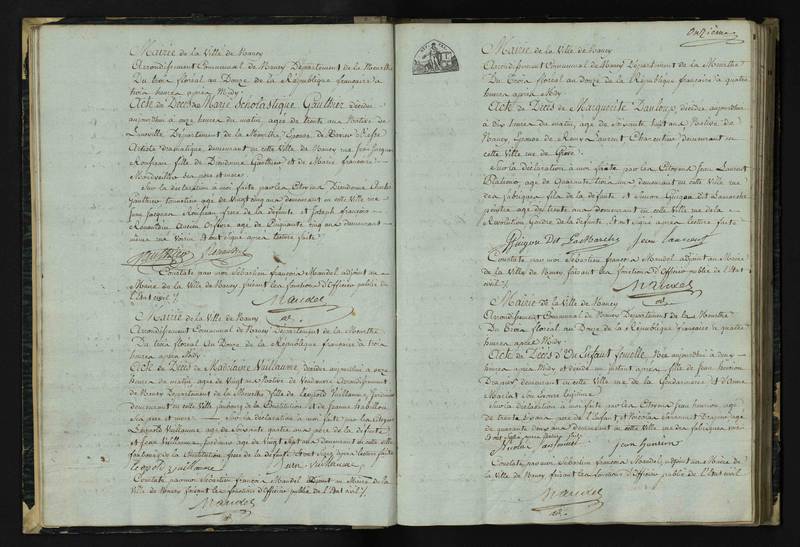 Mairie de la Ville de Nancy
Arrondissement Communal de Nancy Département de la Meurthe
Du trois floréal an Douze de la République française à
trois heures après Midy
Acte de Décès de Marie Scholastique Gauthier décédée
aujourd'hui à onze heures du matin, agée de trente ans Native de
Luneville Département de la Meurthe, Epouse de
Artiste dramatique, demeurant en cette Ville de Nancy rue Jean Jacques
Rousseau fille de Dieudonné Gauthier et de Marie françoise
ses pere et mere
Sur la déclaration à moi faite par les Citoyens Dieudonné
Gauthier agé de Vingt cinq ans demeurant en cette Ville rue
Jean Jacques Rousseau frere de la défunte et Joseph françois
Orfevre agé de Cinquante cinq ans demeurant
même rue Voisin et ont signé après lecture faite
Constaté par moi Sébastien françois Mandel adjoint au
Maire de la Ville de Nancy faisant les fonctions d'Officier public de
l'Etat civil
Mandel
ad.
Mairie de la Ville de Nancy
Arrondissement Communal de Nancy Département de la Meurthe
Du trois floréal an Douze de la République française à trois
heures après Midy
Acte de Décès de Madelaine Vuillaume, décédée aujourd'hui à onze
heures du matin, agée de Vingt ans Native de Vandoeuvre Arrondissement
de Nancy Département de la Meurthe fille de Léopold Vuillaume, Jardinier
demeurant en cette Ville faubourg de la Constitution et de Jeanne
ses pere et mere Sur la déclaration à moi faite par les Citoyens
Léopold Vuillaume agé de Soixante quatre ans pere de la défunte
et Jean Vuillaume, Jardinier agé de Vingt Sept ans demeurant en cette ville
faubourg de la Constitution frere de la défunte et ont Signé après lecture faite
Leopold Vuillaume Jean Vuillaume
Constaté par moi Sébastien françois Mandel adjoint au Maire de la
Ville de Nancy faisant les fonctions d'Officier public de l'Etat civil
Mandel
ad.
Onzième
Mairie de la Ville de Nancy
Arrondissement Communal de Nancy Département de la Meurthe
Du trois floréal an douze de la République française à quatre
heures après Midy
Acte de Décès de Marguerite décédée aujourd'hui
à dix heures du matin, agée de Soixante huit ans Native de
Nancy, Epouse de Remy Laurent Charpentier demeurant en
cette Ville rue de Grève
Sur la déclaration à moi faite par les Citoyens Jean Laurent
agé de Quarante trois ans demeurant en cette Ville rue
des fabriques fils de la défunte et Guigou dit Lamarche
peintre agé de trente ans demeurant en cette Ville rue de la
Révolution Gendre de la défunte, et ont signé après lecture faite
Guigou Dit LaMarche Jean Laurent
Constaté par moi Sébastien françois Mandel adjoint au Maire
de la Ville de Nancy faisant les fonctions d'Officier public de l'Etat
civil
Mandel
ad.
Mairie de la Ville de Nancy
Arrondissement Communal de Nancy Département de la Meurthe
Du trois floréal an Douze de la République française à quatre
heures après Midy
Acte de Décès d'Un Enfant femelle, Née aujourd'hui à deux
heures après Midy et décédé un instant après fille de Jean henrion
demeurant en cette Ville rue de la Gendarmerie et d'Anne
son Epouse légitime
Sur la déclaration à moi faite par les Citoyens Jean henrion agé
de trente ans pere de l'Enfant et Nicolas agé
de quarante deux ans demeurant en cette Ville rue des fabriques
et ont signé après lecture faite
Nicolas jean henrion
Constaté par moi Sébastien françois Mandel, adjoint au Maire de
la Ville de Nancy faisant les fonctions d'Officier public de l'Etat civil
Mandel
ad.